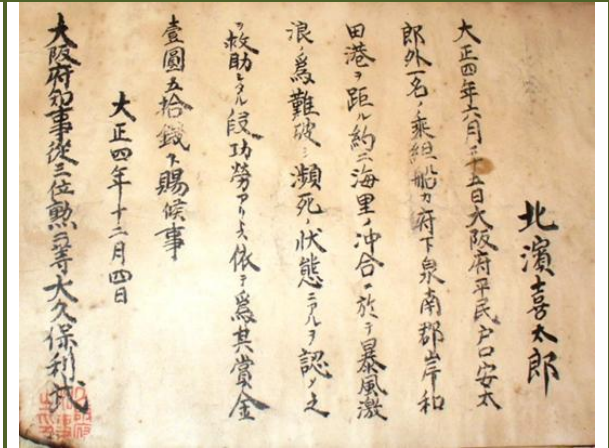 北濱喜太郎
大正四年六月二十五日大阪府平民戸口安太
郎外一名ノ乗組船カ府下泉南郡岸和
田港ヲ距ル約二海里ノ沖合ニ於テ暴風激
浪ノ為難破シ瀕死ノ状態ニアルヲ認メ之
ヲ救助シタル段功労アリトス依テ為其賞金
壹圓五拾銭下賜候事
大正四年十二月四日
大阪府知事從三位勲二等大久保利武